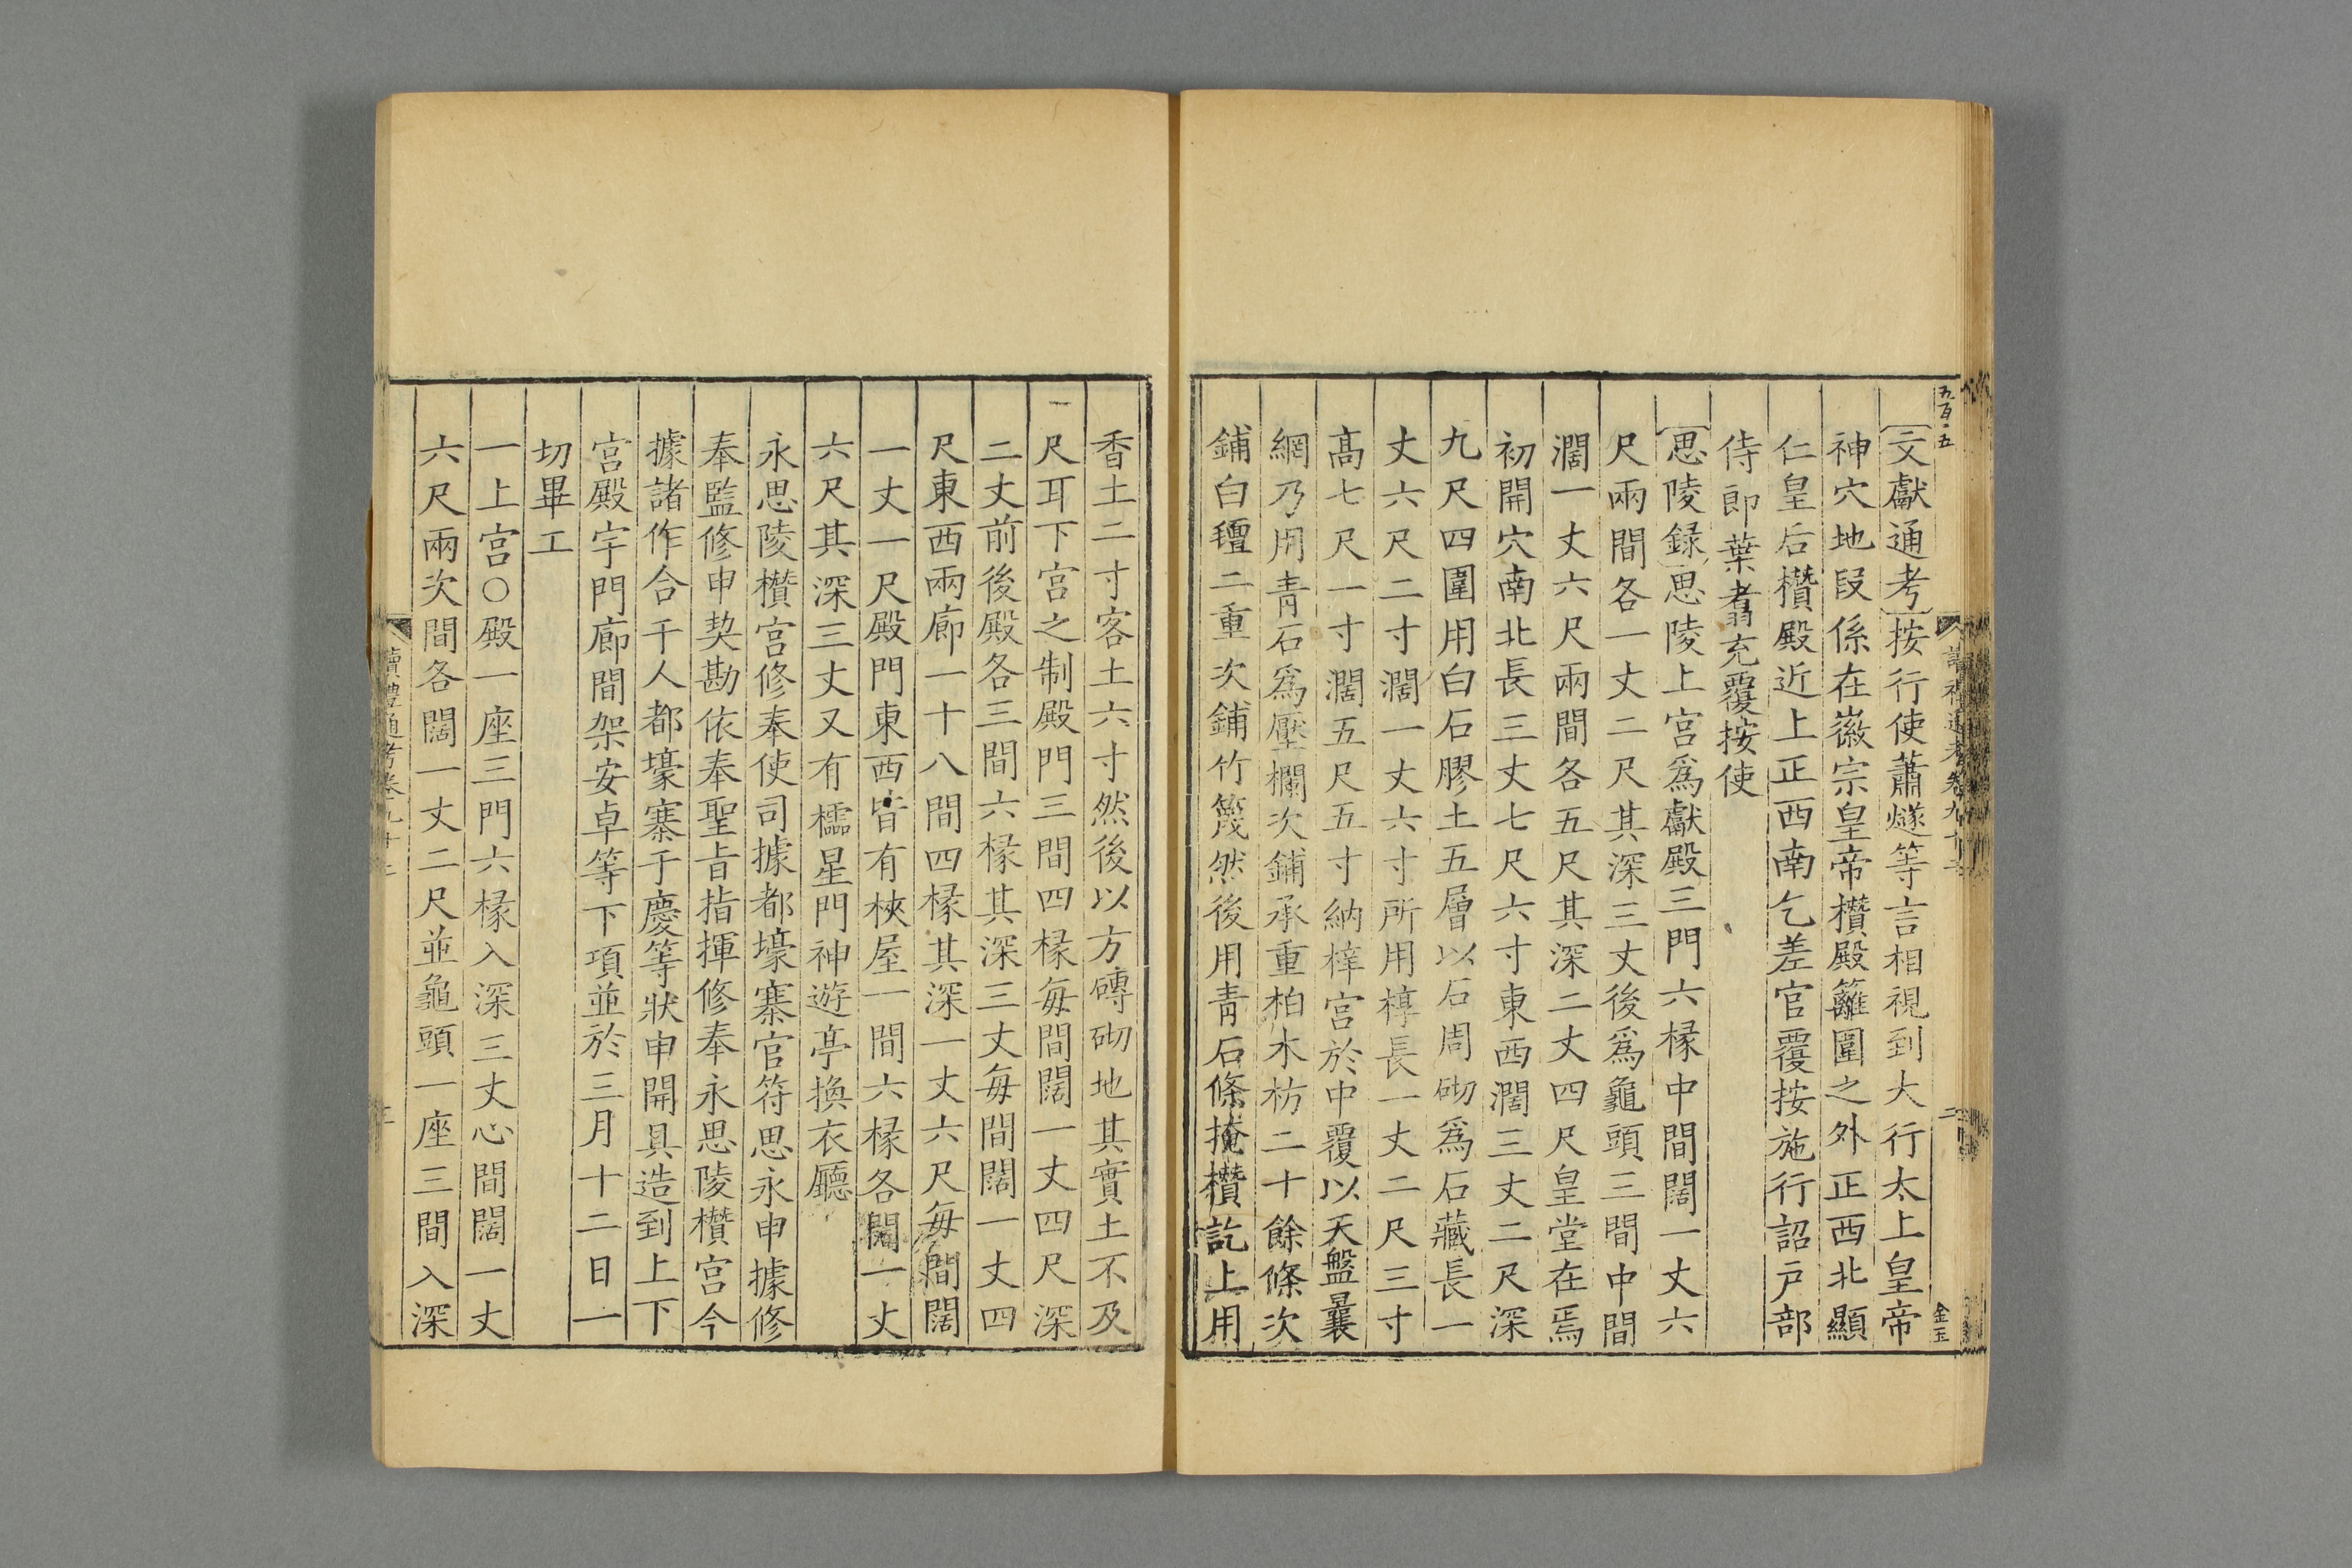 五百·五
文獻通考按行使蕭燧等言相視到大行太上皇帝
神穴地段係在徽宗皇帝攢殿籬圍之外正西北顯
仁皇后攢殿近上正西南乞差官覆按施行詔戸部
侍郎葉翥充覆按使
思陵録思陵上宫爲獻殿三門六椽中間闊一丈六
尺兩間各一丈二尺其深三丈後爲龜頭三間中間
濶一丈六尺兩間各五尺其深二丈四尺皇堂在焉
初開穴南北長三丈七尺六寸東西濶三丈二尺深
九尺四圍用白石膠土五層以石周砌爲石藏長一
丈六尺二寸濶一丈六寸所用椁長一丈二尺三寸
髙七尺一寸濶五尺五寸納梓宫於中覆以天盤囊
網乃用青石爲壓欄次鋪承重柏木枋二十餘條次
鋪白氊二重次鋪竹篾然後用青石條掩攢訖上用
讀禮通考卷九十二
二
金玉
香土二寸客土六寸然後以方磚砌地其實土不及
一尺耳下宫之制殿門三間四椽每間闊一丈四尺深
二丈前後殿各三間六椽其深三丈每間闊一丈四
尺東西兩廊一十八間四椽其深一丈六尺每間闊
一丈一尺殿門東西皆有挾屋一間六椽各闊一丈
六尺其深三丈又有櫺星門神遊亭換衣廳
永思陵攢宫修奉使司據都壕寨官符思永申據修
奉監修申契勘依奉聖旨指揮修奉永思陵攢宫今
據諸作合千人都壕寨于慶等狀申開具造到上下
宫殿宇門廊間架安卓等下項並於三月十二日一
切畢工
一上宫○殿一座三門六椽入深三丈心間闊一丈
六尺兩次間各闊一丈二尺並龜頭一座三間入深
讀禮通考卷九十二